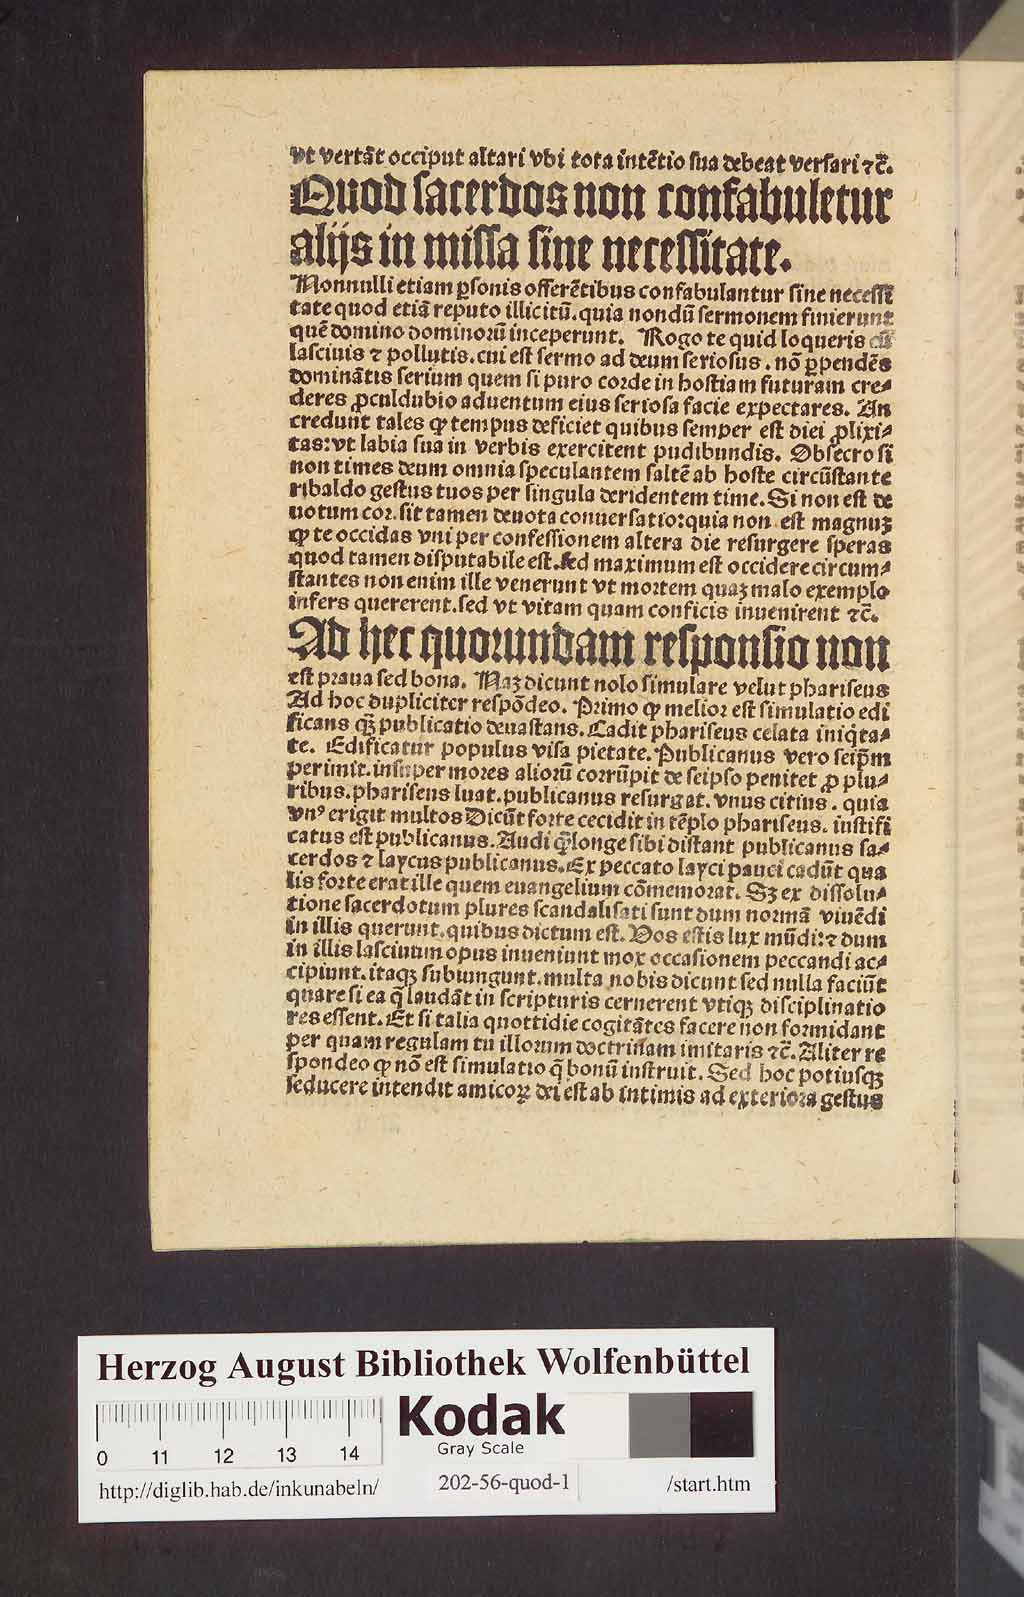 vt vertāt occiput altari vbi tota intētio sua debeat versari ⁊c̄.
Quod sacerdos non confabuletur
alijs in missa sine necessitate.
Nonnulli etiam ꝑsonis offerētibus confabulantur sine necessi
tate quod etiā reputo illicitū. quia nondū sermonem finierunt
quē domino dominorū inceperunt. Rogo te quid loqueris cū
lasciuis ⁊ pollutis. cui est sermo ad deum seriosus. nō ꝑpendēs
dominātis serium quem si puro corde in hostiam futuram cre⸗
deres ꝓculdubio aduentum eius seriosa facie expectares. An
credunt tales ꝙ tempus deficiet quibus semper est diei ꝓlixi⸗
tas: vt labia sua in verbis exercitent pudibundis. Obsecro si
non times deum omnia speculantem saltē ab hoste circūstante
ribaldo gestus tuos per singula deridentem time. Si non est de
uotum cor. sit tamen deuota conuersatio: quia non est magnuꝫ
ꝙ te occidas vni per confessionem altera die resurgere speras
quod tamen disputabile est. sed maximum est occidere circum⸗
stantes non enim ille venerunt vt mortem quaꝫ malo exemplo
infers quererent. sed vt vitam quam conficis inuenirent ⁊c̄.
Ad hec quorundam responsio non
est praua sed bona. Naꝫ dicunt nolo simulare velut phariseus
Ad hoc dupliciter respōdeo. Primo ꝙ melior est simulatio edi
ficans qꝫ̄ publicatio deuastans. Cadit phariseus celata iniq̇ta⸗
te. Edificatur populus visa pietate. Publicanus vero seip̄m
perimit. insuper mores aliorū corrūpit de seipso penitet ꝓ plu⸗
ribus. phariseus luat. publicanus resurgat. vnus citius. quia
vnꝰ erigit multos Dicūt forte cecidit in tēplo phariseus. iustifi
catus est publicanus. Audi q̄ longe sibi distant publicanus sa⸗
cerdos ⁊ laycus publicanus. Ex peccato layci pauci cadūt qua
lis forte erat ille quem euangelium cōmemorat. Sꝫ ex dissolu⸗
tione sacerdotum plures scandalisati sunt dum normā viuēdi
in illis querunt. quibus dictum est. Vos estis lux mūdi: ⁊ dum
in illis lasciuum opus inueniunt mox occasionem peccandi ac⸗
cipiunt. itaqꝫ subiungunt. multa nobis dicunt sed nulla faciūt
quare si ea q̄ laudāt in scripturis cernerent vtiqꝫ disciplinatio
res essent. Et si talia quottidie cogitātes facere non formidant
per quam regulam tu illorum doctrinam imitaris ⁊c̄. Aliter re
spondeo ꝙ nō est simulatio q̄ bonū instruit. Sed hoc potiusqꝫ
seducere intendit amicoꝝ dei est ab intimis ad exteriora gestus
Herzog August Bibliothek Wolfenbüttel
0 11 12 13 14
Kodak
Gray Scale
http://diglib.hab.de/inkunabeln/ 202-56-quod-1 /start.htm